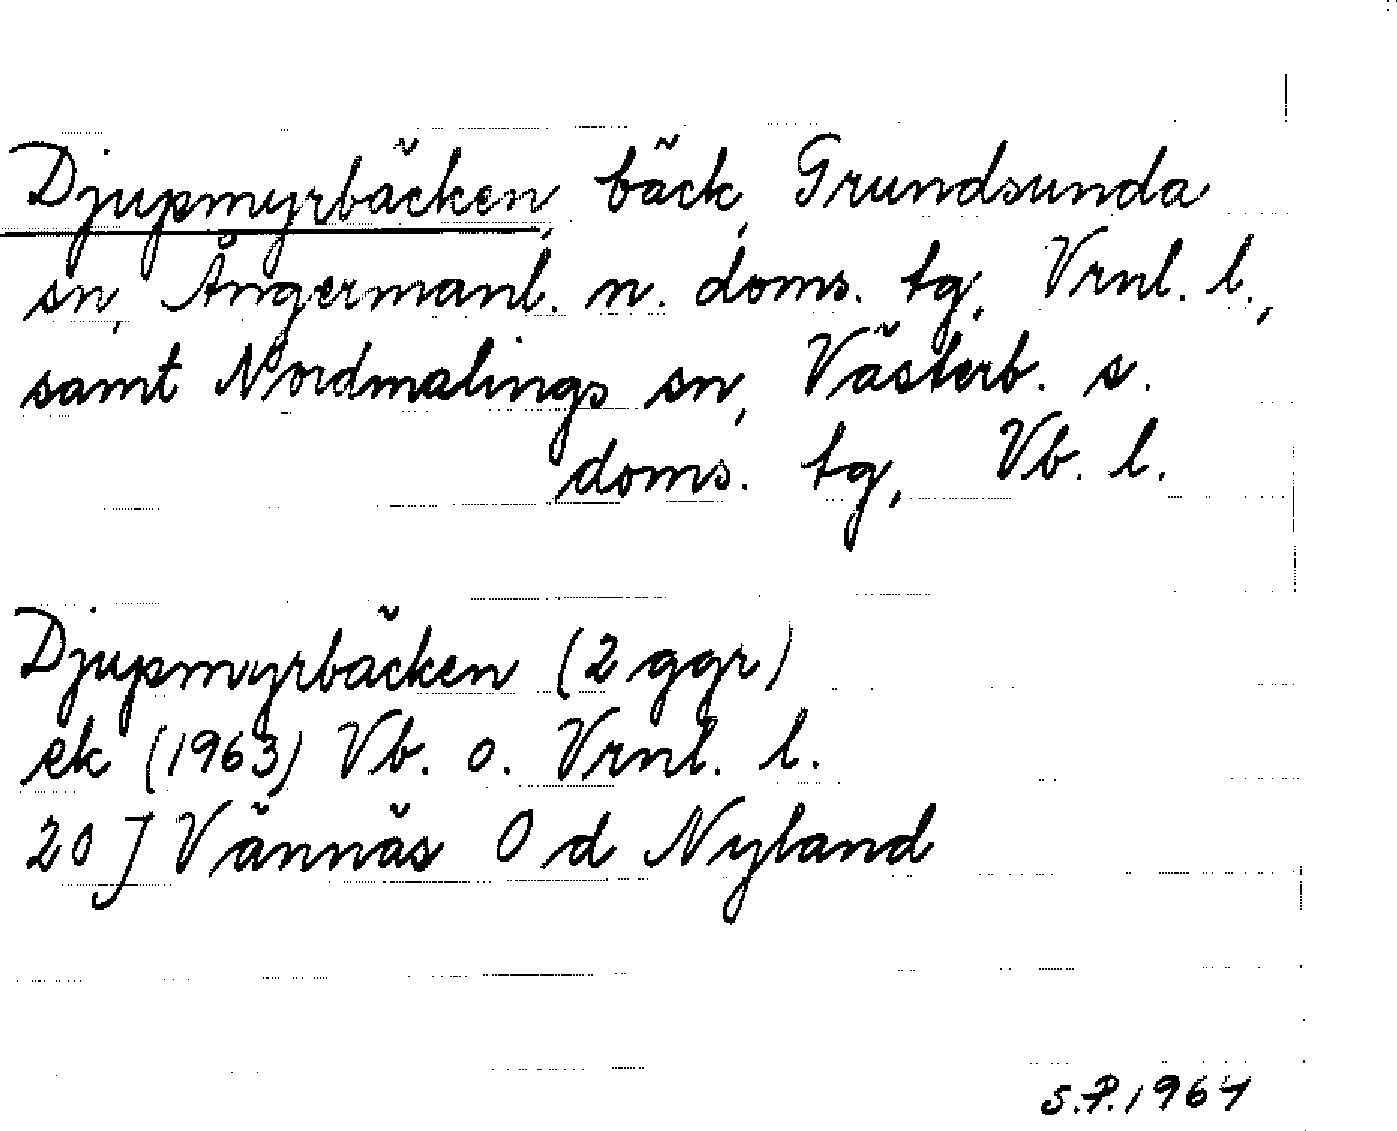 Djupmyrbäcken, bäck, Grundsunda
sn, Ångermanl. n. doms. tg, Vrnl. l.,
samt Nordmalings sn, Västerb. s.
doms. tg, Vb. l.
Djupmyrbäcken (2 ggr)
ek (1963) Vb. o. Vrnl. l.
20 J Vännäs 0 d Nyland
S.P. 1964